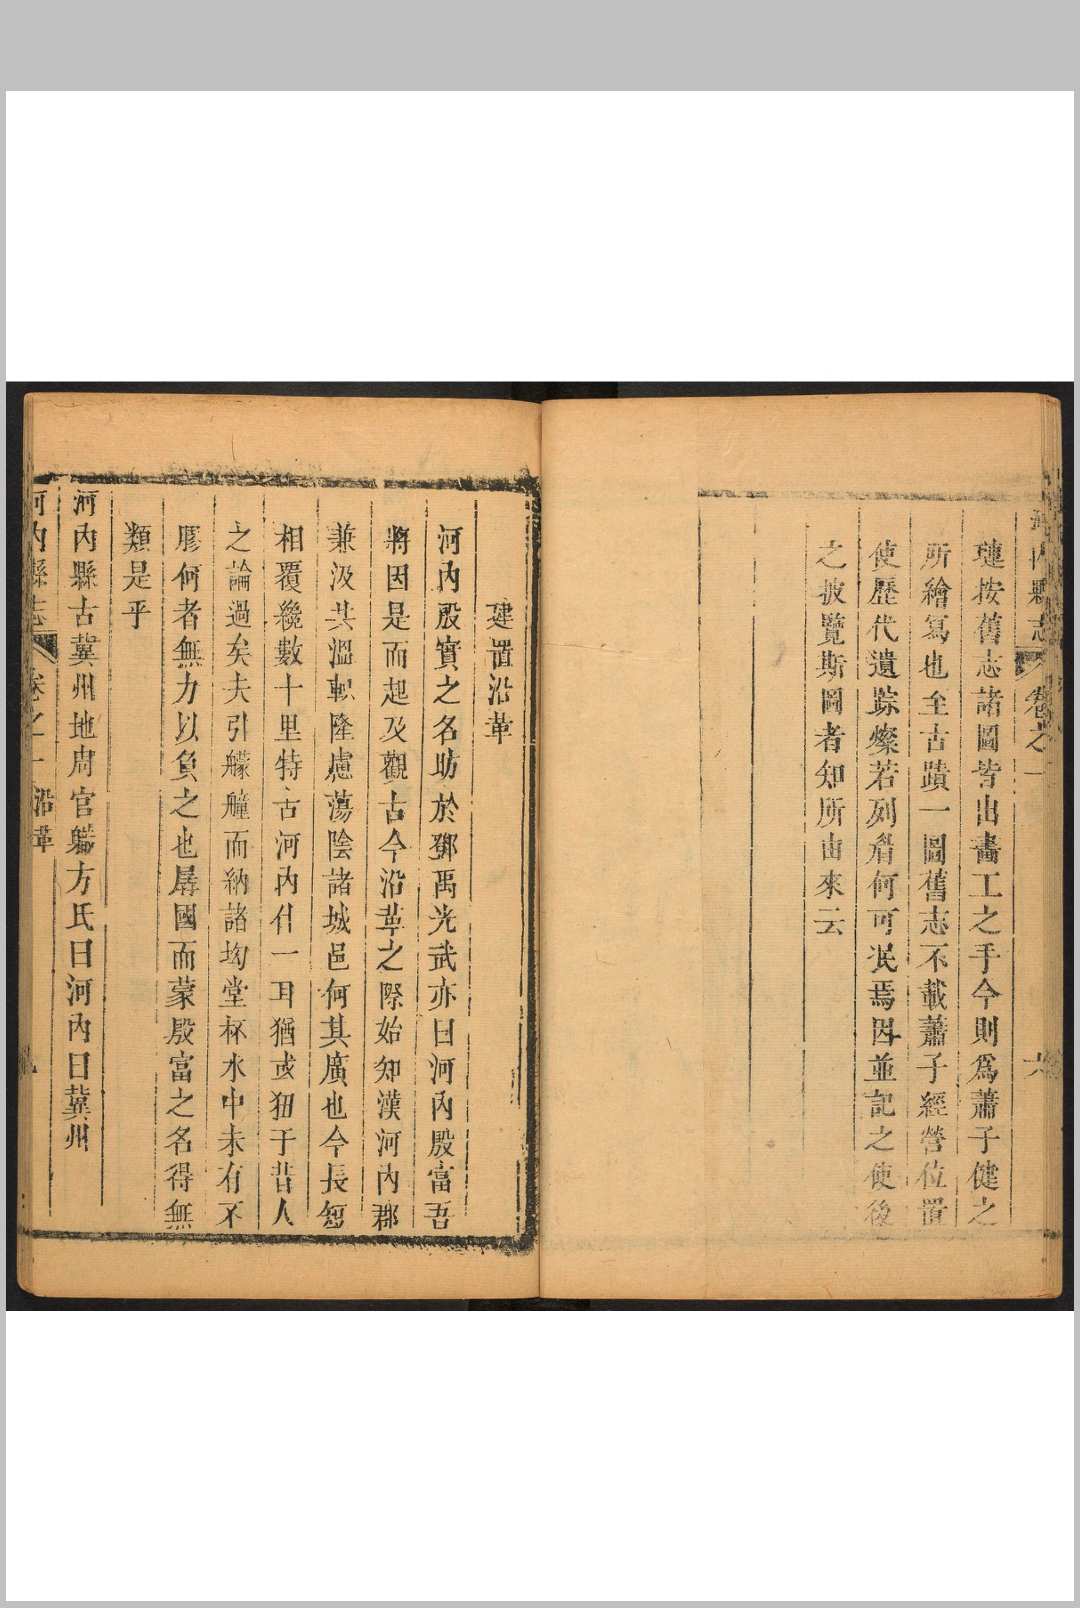 河內縣志 卷之一 六
璉按舊志諸圖皆出畵工之手今則爲蕭子健之
所繪寫也至古蹟一圖舊志不載蕭子經營位置
使歷代遺踪燦若列眉何可泯焉因並記之使後
之披覽斯圖者知所由來云
建置沿革
河內殷實之名昉於鄧禹光武亦曰河內殷富吾
將因是而起及觀古今沿革之際始知漢河內郡
兼汲共溫軹隆慮蕩陰諸城邑何其廣也今長短
相覆纔數十里特古河內什一耳猶或狃于昔人
之論過矣夫引艨艟而納諸坳堂杯水中未有不
膠何者無力以負之也孱國而蒙殷富之名得無
類是乎
河內縣古冀州地周官職方氏曰河內曰冀州
河內縣志 卷之一 沿革